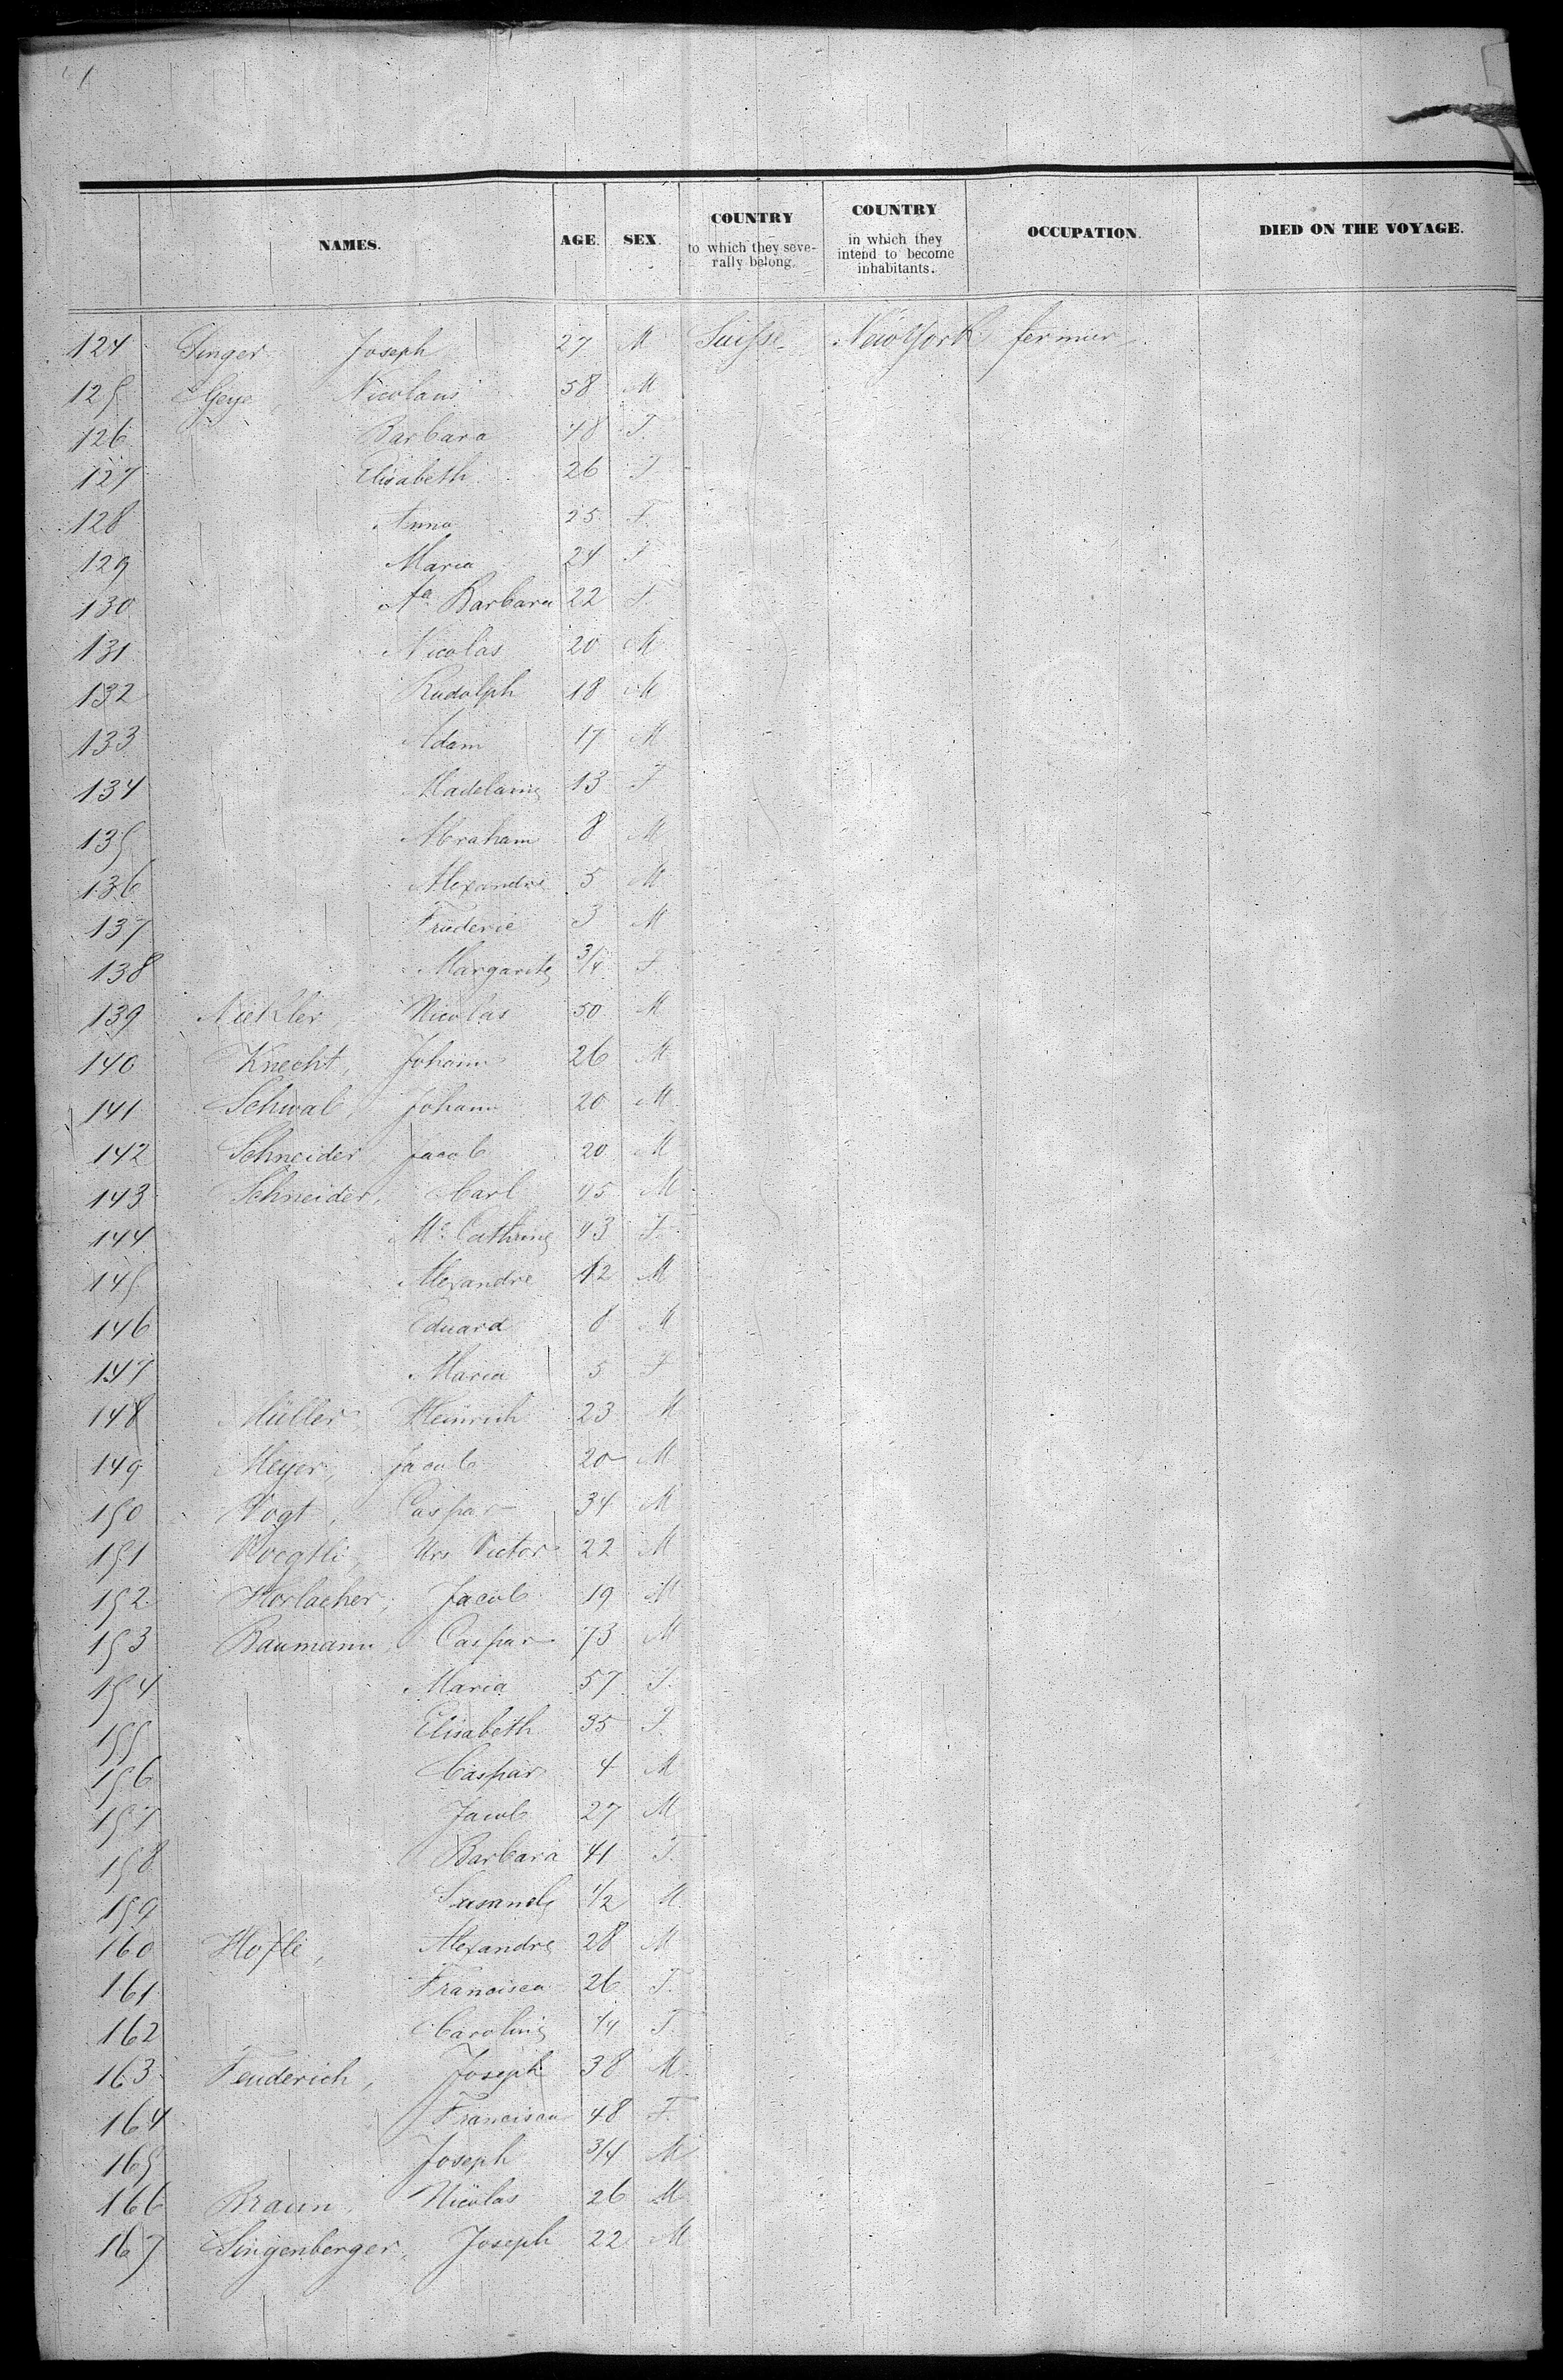 NAMES. AGE. SEX. COUNTRY to which they severally belong. COUNTRY in which they intend to become inhabitants. OCCUPATION. DIED ON THE VOYAGE.
124 Singer, Joseph 27 M Suisse New York fermier
125 Nicolaus 58 M
126 Barbara 48 F.
127 Elisabeth 26 F
128 Anna 25 F.
129 Maria 24 F
130 Aa Barbara 22 F.
131 Nicolas 20 M
132 Rudolph 18 M
133 Adam 17 M
134 Madelaine 13 F
135 Abraham 8 M
136 Alexandre 5 M
137 Friederic 3 M
138 Margarite 3/4 F.
139 Nicolas 50 M
140 Knecht, Johann 26 M
141 Schwab, Johann 20 M
142 Schneider Jacob 20 M
143 Schneider, Carl 45 M
144 Ma Cathrine 43 F.
145 Alexandre 12 M
146 Eduard 8 M
147 Maria 5 F
148 Müller Heinrich 23 M
149 Meyer, Jacob 20 M
150 Vogt, Caspar 34 M
151 Voegtli, Urs Victor 22 M
152 Horlacher, Jacob 19 M
153 Baumann, Caspar 73 M
154 Maria 57 F.
155 Elisabeth 35 F.
156 Caspar 4 M
157 Jacob 27 M
158 Barbara 41 F.
159 1/2 M
160 Alexandre 28 M
161 Francisca 26 F.
162 Caroline F.
163 Fenderich, Joseph 38 M.
164 Francisca 48 F.
165 Joseph 3/4 M
166 Braun, Nicolas 26 M
167 Singenberger, Joseph 22 M